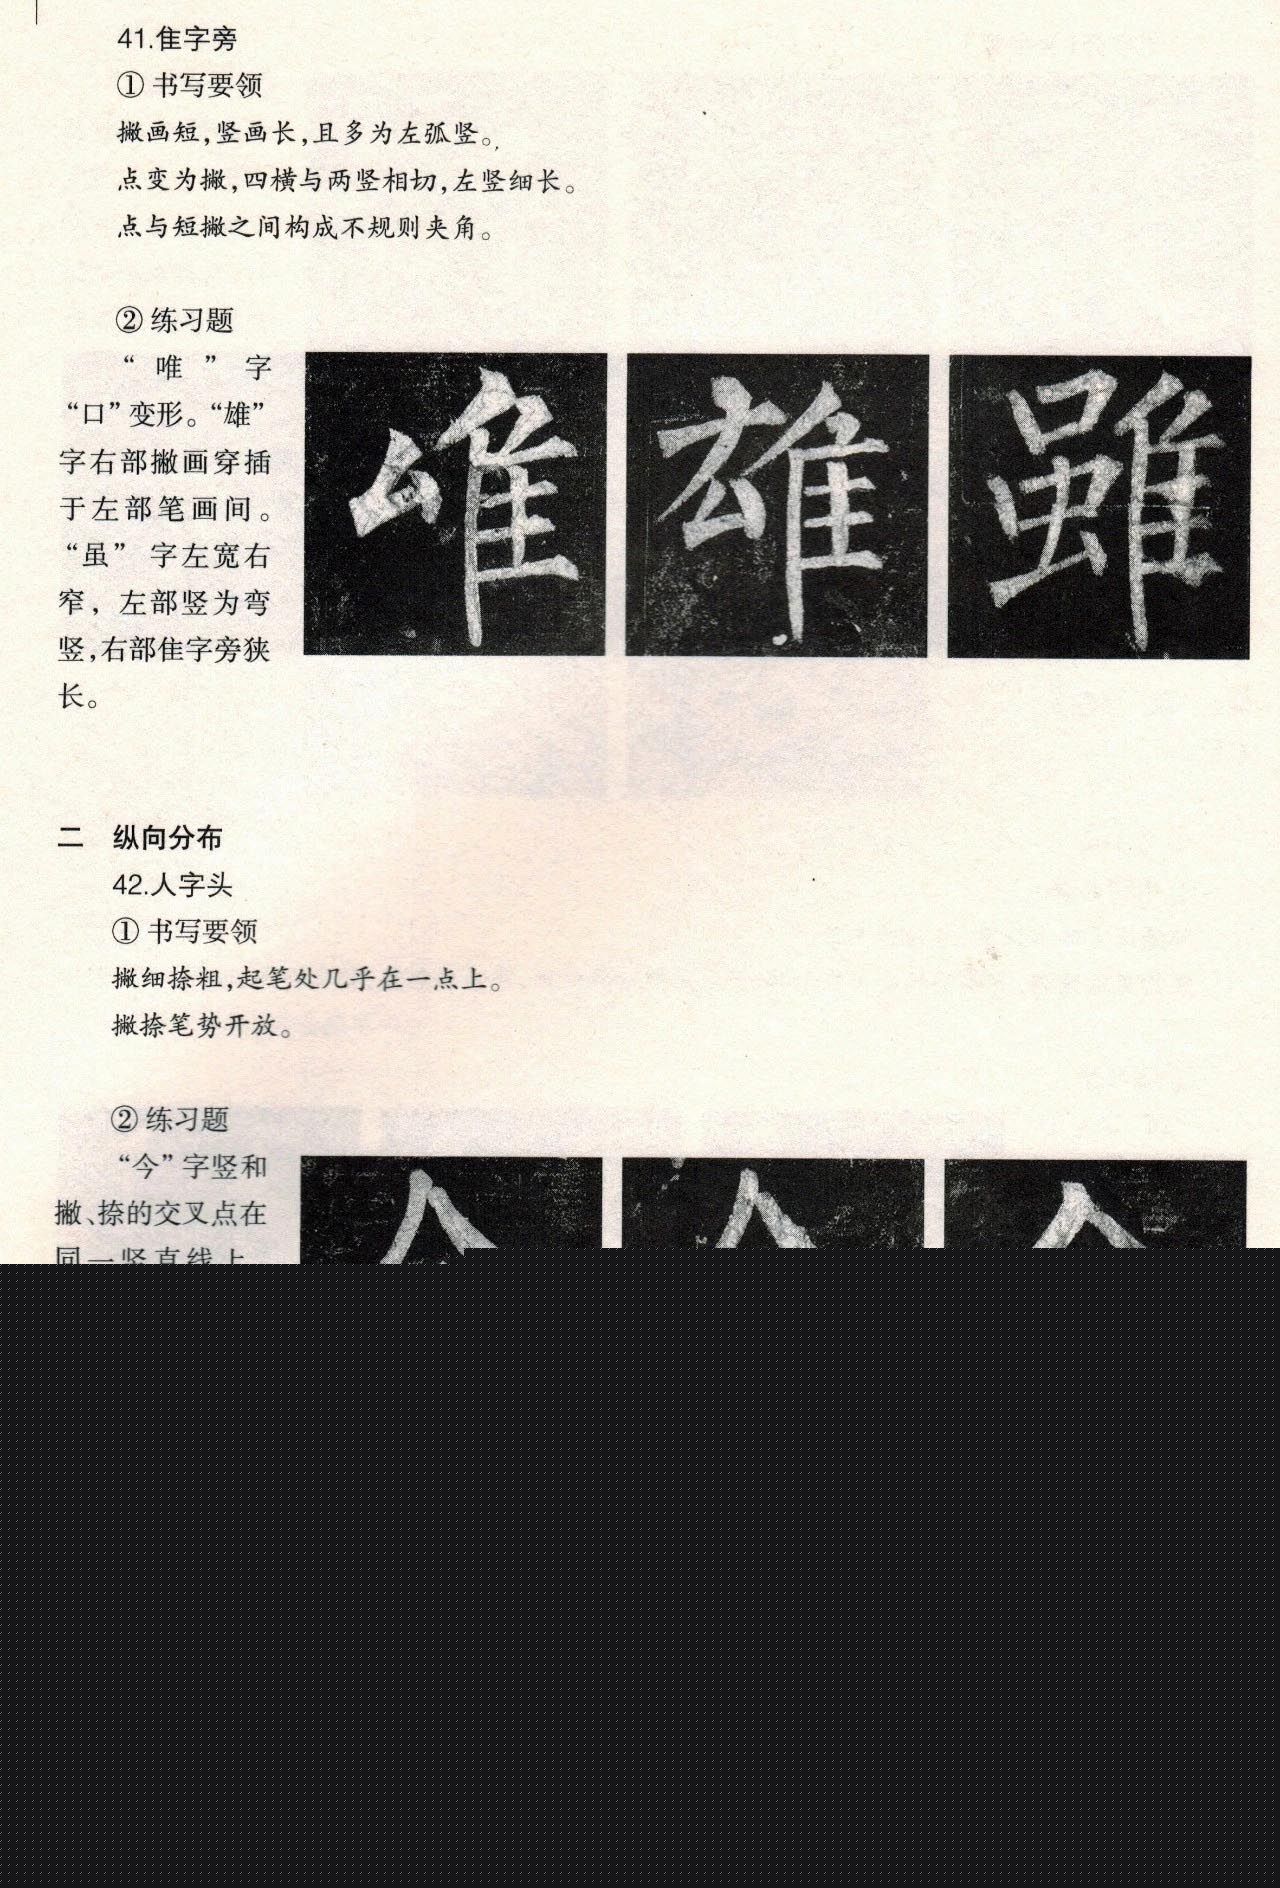 41.隹字旁
① 书写要领
撇画短,竖画长,且多为左弧竖。
点变为撇,四横与两竖相切,左竖细长。
点与短撇之间构成不规则夹角。
② 练习题
“唯”字
“口”变形。“雄”
字右部撇画穿插
于左部笔画间。
“虽”字左宽右
窄，左部竖为弯
竖,右部隹字旁狭
长。
唯 雄 雖
二 纵向分布
42.人字头
① 书写要领
撇细捺粗,起笔处几乎在一点上。
撇捺笔势开放。
② 练习题
“今”字竖和
撇、捺的交叉点在
同一竖直线上